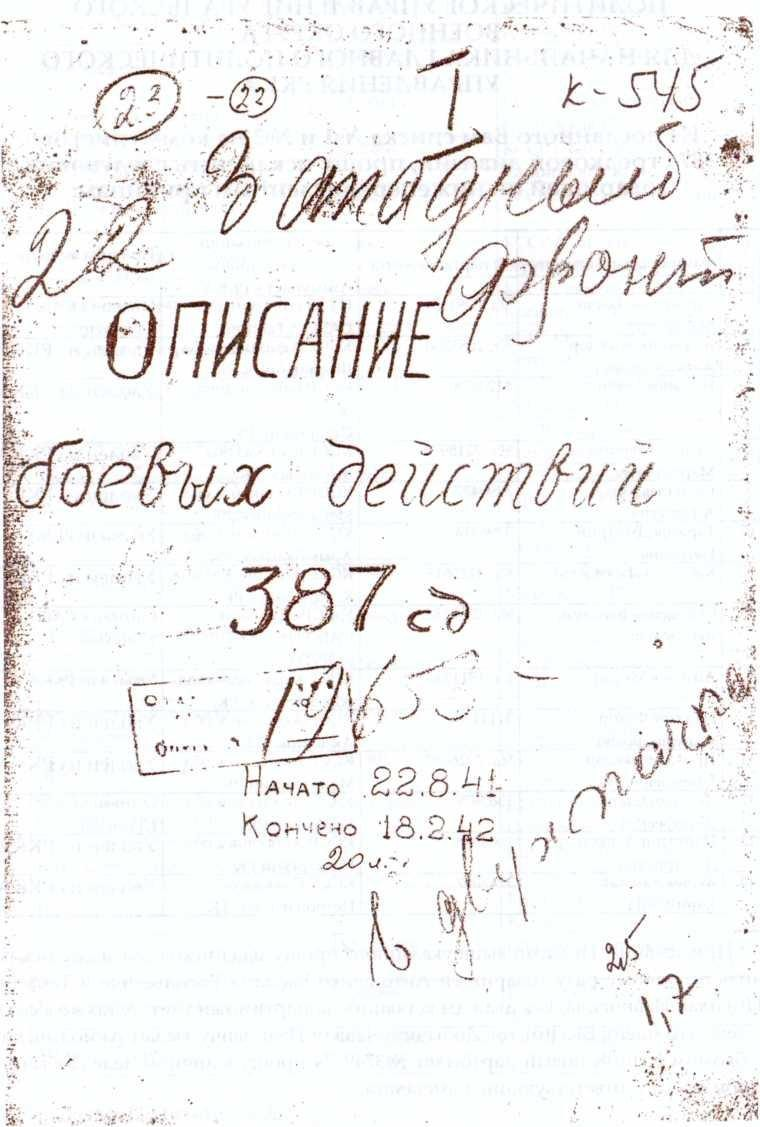 22 - 22 I К-545
22 Западный
фронт
ОПИСАНИЕ
боевых действий
387 сд
Начато 22.8.41
Кончено 18.2.42
20 л.
в двух частях
25
1.7